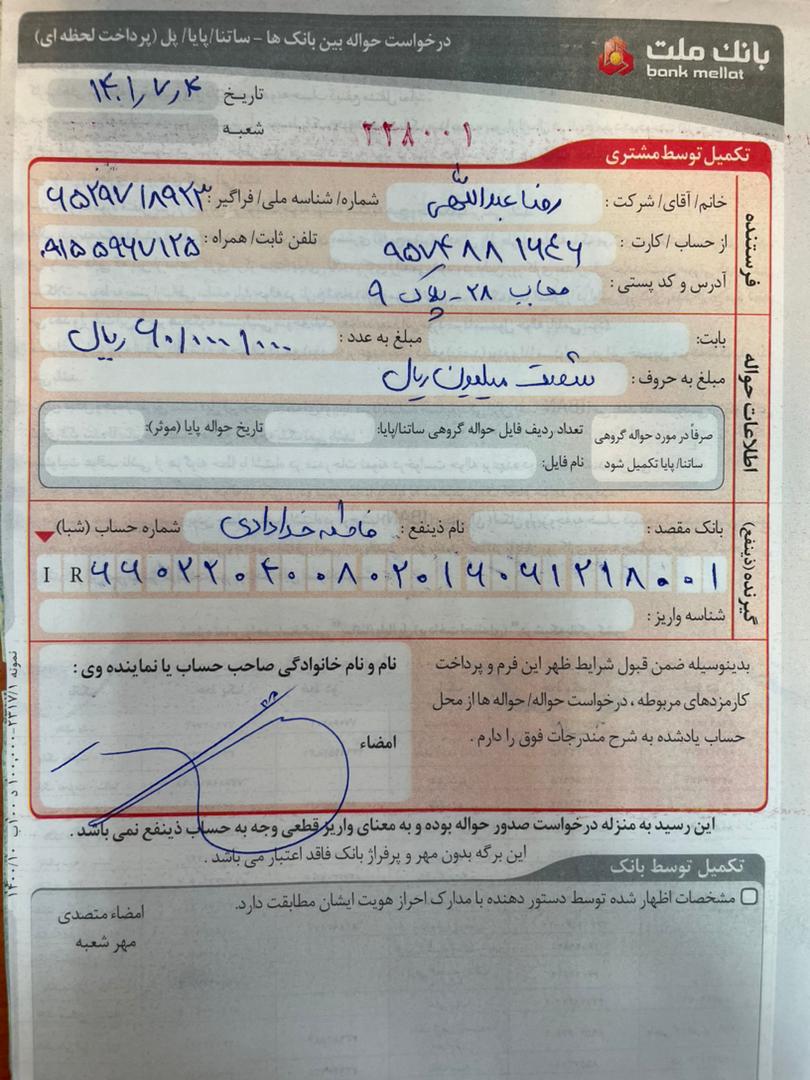 بانک ملت
bank mellat
درخواست حواله بین بانک ها - ساتنا/پایا/ پل (پرداخت لحظه ای)
تاریخ ۱۴۰۱/۷/۴
شعبه
۲۲۸۰۰۱
تکمیل توسط مشتری
فرستنده
خانم/ آقای/ شرکت : رضا عبداللهی شماره/ شناسه ملی/ فراگیر : ۶۵۲۹۷۱۸۹۲۳
از حساب / کارت : ۹۵۷۴۸۸۱۶۴۶ تلفن ثابت/ همراه : ۰۹۱۵۵۹۶۷۱۲۵
آدرس و کد پستی : ۲۸ - پلاک ۹
اطلاعات حواله
بابت: مبلغ به عدد : ۶۰/۰۰۰/۰۰۰ ریال
مبلغ به حروف : شصت میلیون ریال
صرفاً در مورد حواله گروهی
ساتنا/ پایا تکمیل شود
تعداد ردیف فایل حواله گروهی ساتنا/پایا: تاریخ حواله پایا (موثر):
نام فایل:
گیرنده (ذینفع)
بانک مقصد : نام ذینفع : فاطمه خدادادی شماره حساب (شبا)
I R ۶۶۰۲۲۰۴۰۰۸۰۲۰۱۶۰۶۱۲۱۸۰۰۱
شناسه واریز :
بدینوسیله ضمن قبول شرایط ظهر این فرم و پرداخت
کارمزدهای مربوطه ، درخواست حواله/ حواله ها از محل
حساب یادشده به شرح مندرجات فوق را دارم .
نام و نام خانوادگی صاحب حساب یا نماینده وی :
امضاء
این رسید به منزله درخواست صدور حواله بوده و به معنای واریز قطعی وجه به حساب ذینفع نمی باشد .
این برگه بدون مهر و پرفراژ بانک فاقد اعتبار می باشد .
تکمیل توسط بانک
مشخصات اظهار شده توسط دستور دهنده با مدارک احراز هویت ایشان مطابقت دارد.
امضاء متصدی
مهر شعبه
نمونه ۲۳۱۷/۱-۱۰۰,۰۰۰ د ۱۰۰ ب ۱۴۰۰/۱۰